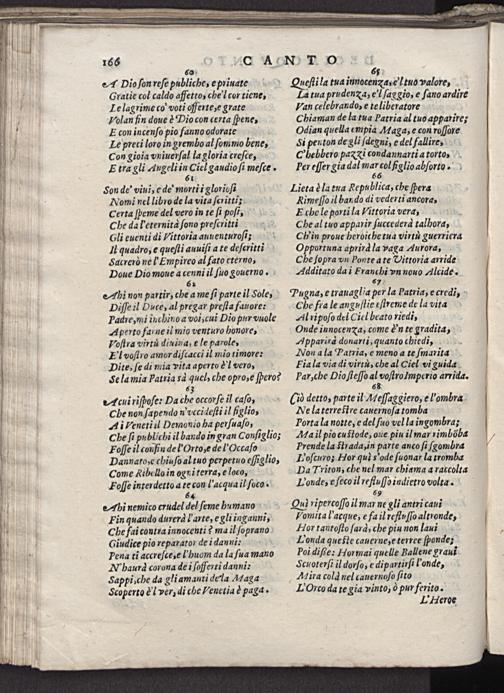 166 CANTO
60
A Dio son rese publiche, e priuate
Gratie col caldo affetto, che'l cor tiene,
Le lagrime co' voti offerte, e grate
Volan fin doue è Dio con certa spene,
E con incenso pio fanno odorate
Le preci loro in grembo al sommo bene,
Con gioia vniuersal la gloria cresce,
E tra gli Angeli in Ciel gaudio si mesce.
61
Son de' viui, e de' morti i gloriosi
Nomi nel libro de la vita scritti;
Certa speme del vero in te si posi,
Che da l'eternità sono prescritti
Gli euenti di Vittoria auuenturosi;
Il quadro, e questi auuisi a te descritti
Sacrerò ne l'Empireo al fato eterno,
Doue Dio moue a cenni il suo gouerno.
62
Ahi non partir, che a me si parte il Sole,
Disse il Duce, al pregar presta fauore:
Padre, mi inchino a voi, cui Dio pur vuole
Aperto farne il mio venturo honore,
Vostra virtù diuina, e le parole,
E'l vostro amor discacci il mio timore:
Dite, se di mia vita aperto è'l vero,
Se la mia Patria sà quel, che opro, e spero?
63
A cui rispose: Da che occorse il caso,
Che non sapendo n'vccidesti il figlio,
A i Veneti il Demonio ha persuaso,
Che si publichi il bando in gran Consiglio;
Fosse il confin de l'Orto, e de l'Occaso
Dannato, e chiuso al tuo perpetuo essiglio,
Come Ribello in ogni terra, e loco,
Fosse interdetto a te con l'acqua il foco.
64
Ahi nemico crudel del seme humano
Fin quando durerà l'arte, e gli inganni,
Che fai contra innocenti? ma il soprano
Giudice pio reparator de i danni:
Pena ti accresce, e l'huom da la sua mano
N'haurà corona de i sofferti danni:
Sappi, che da gli amanti de la Maga
Scoperto è'l ver, di che Venetia è paga.
65
Questi la tua innocenza, e'l tuo valore,
La tua prudenza, e'l saggio, e sano ardire
Van celebrando, e te liberatore
Chiaman de la tua Patria al tuo apparire;
Odian quella empia Maga, e con rossore
Si penton de gli sdegni, e del fallire,
C'hebbero pazzi condannarti a torto,
Per esser gia dal mar col figlio absorto.
66
Lieta è la tua Republica, che spera
Rimesso il bando di vederti ancora,
E che le porti la Vittoria vera,
Che al tuo apparir succederà talhora,
Ch'in proue heroiche tua virtù guerriera
Opportuna aprirà la vaga Aurora,
Che sopra vn Ponte a te Vittoria arride
Additato da i Franchi vn nouo Alcide.
67
Pugna, e trauaglia per la Patria, e credi,
Che fra le angustie estreme de la vita
Al riposo del Ciel beato riedi,
Onde innocenza, come è'n te gradita,
Apparirà donarti, quanto chiedi,
Non a la Patria, e meno a te smarita
Fia la via di virtù, che al Ciel vi guida
Par, che Dio stesso al vostro Imperio arrida.
68
Ciò detto, parte il Messaggiero, e l'ombra
Ne la terrestre cauernosa tomba
Porta la notte, e del suo vel la ingombra;
Ma il pio custode, oue piu il mar rimbōba
Prende la strada, in parte anco si sgombra
L'oscuro; Hor quì s'ode suonar la tromba
Da Triton, che nel mar chiama a raccolta
L'onde, e seco il reflusso indietro volta.
69
Quì ripercosso il mar ne gli antri caui
Vomita l'acque, e fa il reflusso altronde,
Hor tantosto sarà, che piu non laui
L'onda queste cauerne, e terree sponde;
Poi disse: Hormai quelle Ballene graui
Scuotersi il dorso, e dipartirsi l'onde,
Mira colà nel cauernoso sito
L'Orco da te gia vinto, ò pur ferito.
L'Heroe